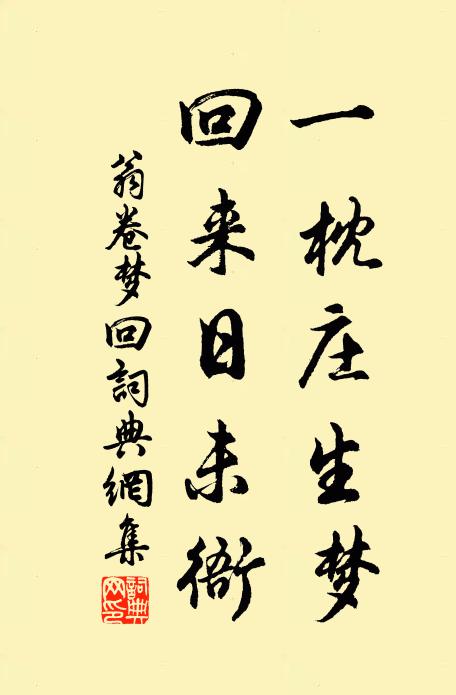 一枕庄生梦
回来日未衙
翁卷梦回詞典網集
詞典网印